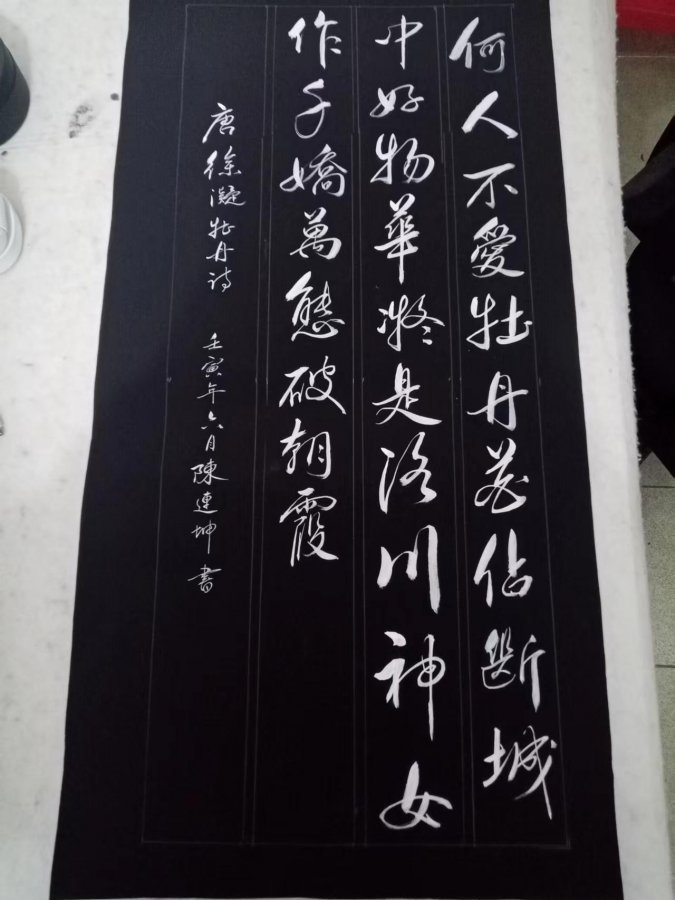 何人不愛牡丹花佔斷城
中好物華凝是洛川神女
作千嬌萬態破朝霞
唐徐凝牡丹诗 壬寅年六月陳連坤書